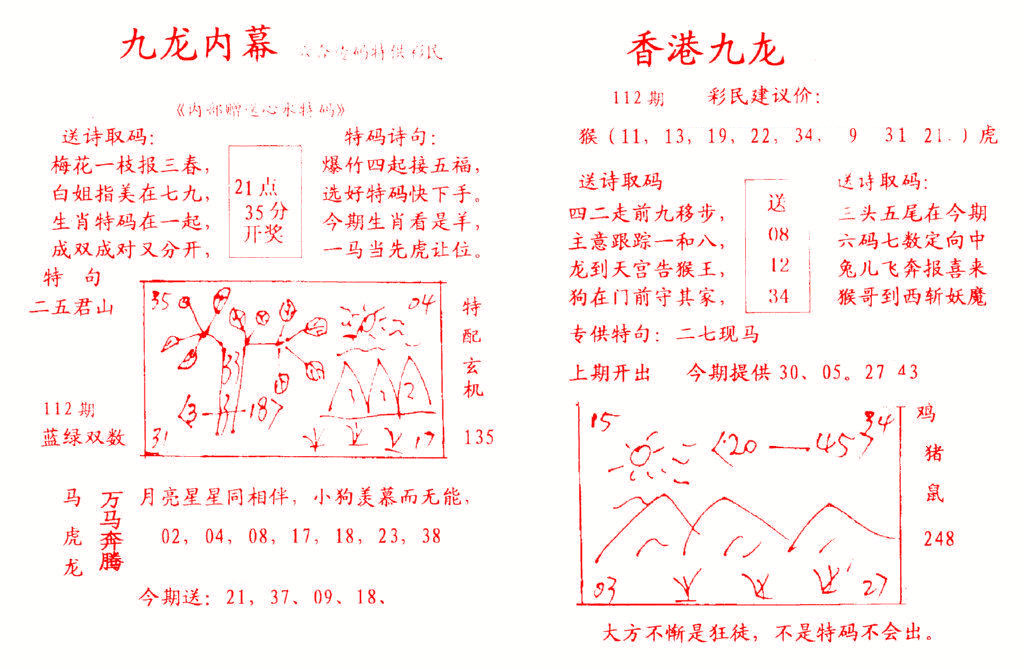 九龙内幕
特供彩民
《内部赠送心水特码》
送诗取码：
梅花一枝报三春，
白姐指美在七九，
生肖特码在一起，
成双成对又分开，
21点
35分
开奖
特码诗句：
爆竹四起接五福，
选好特码快下手。
今期生肖看是羊，
一马当先虎让位。
特 句
二五君山
112期
蓝绿双数
35
04
33
31
17
特配玄机
135
马虎龙
万马奔腾
月亮星星同相伴，小狗羡慕而无能，
02，04，08，17，18，23，38
今期送：21，37、09、18、
香港九龙
112期 彩民建议价：
猴（11，13，19，22，34， 9 31 21.）虎
送诗取码
四二走前九移步，
主意跟踪一和八，
龙到天宫告猴王，
狗在门前守其家，
送
08
12
34
送诗取码：
三头五尾在今期
六码七数定向中
兔儿飞奔报喜来
猴哥到西斩妖魔
专供特句：二七现马
上期开出 今期提供 30、05。27 43
15
34
<20—45>
03
27
鸡
猪
鼠
248
大方不惭是狂徒，不是特码不会出。